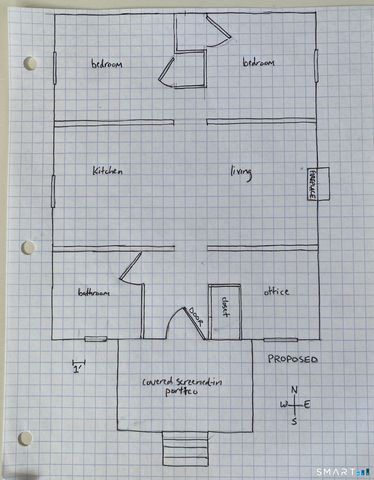 bedroom
bedroom
Kitchen
living
FIREPLACE
bathroom
DOOR
closet
office
1'
covered screened-in
portico
PROPOSED
N
W E
S
SMART